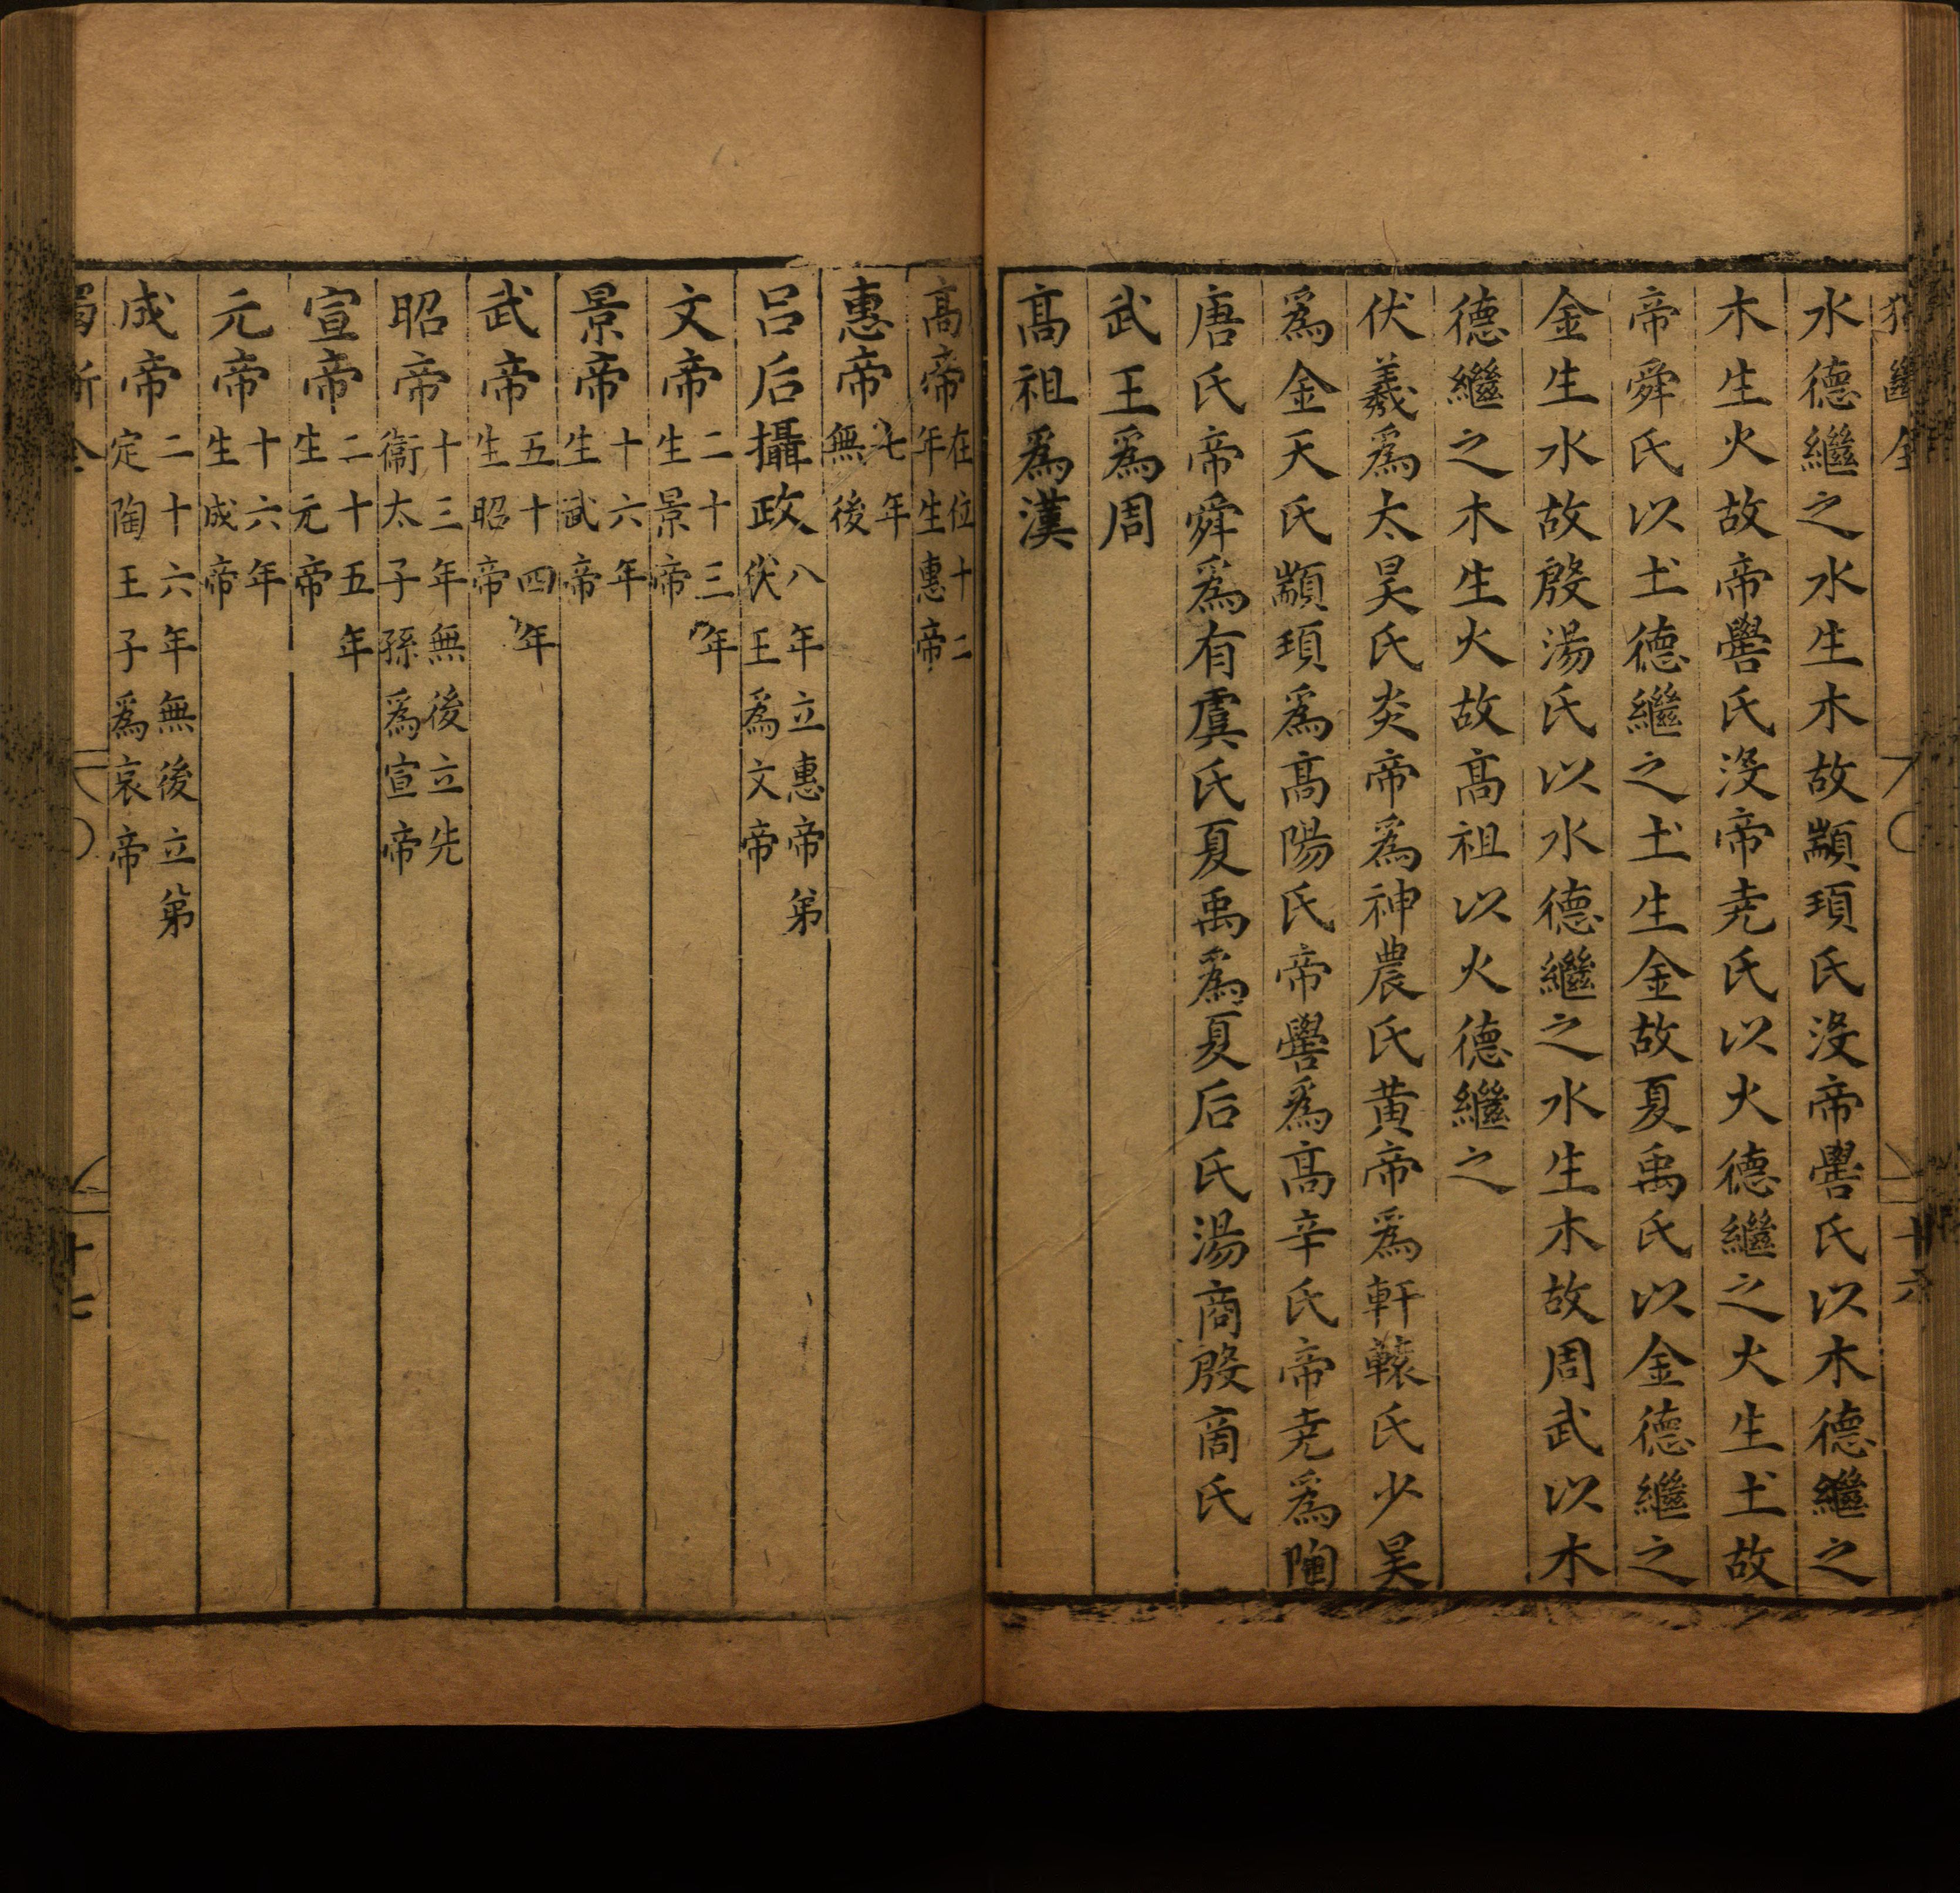 水德繼之水生木故顓頊氏沒帝嚳氏以木德繼之
木生火故帝嚳氏沒帝尭氏以火德繼之火生𡈽故
帝舜氏以𡈽德繼之𡈽生金故夏禹氏以金德繼之
金生水故殷湯氏以水德繼之水生木故周武以木
德繼之木生火故髙祖以火德繼之
伏羲爲太昊氏炎帝爲神農氏黄帝爲軒轅氏少昊
爲金天氏顓頊爲髙陽氏帝嚳爲髙辛氏帝尭爲陶
唐氏帝舜爲有虞氏夏禹爲夏后氏湯商殷商氏
武王爲周
髙祖爲漢
髙帝在位十二
年生惠帝
惠帝七年
無後
吕后攝政八年立惠帝弟
伏王爲文帝
文帝二十三年
生景帝
景帝十六年
生武帝
武帝五十四年
生昭帝
昭帝十三年無後立先
衞太子孫爲宣帝
宣帝二十五年
生元帝
元帝十六年
生成帝
成帝二十六年無後立弟
定陶王子爲哀帝
十六
十七